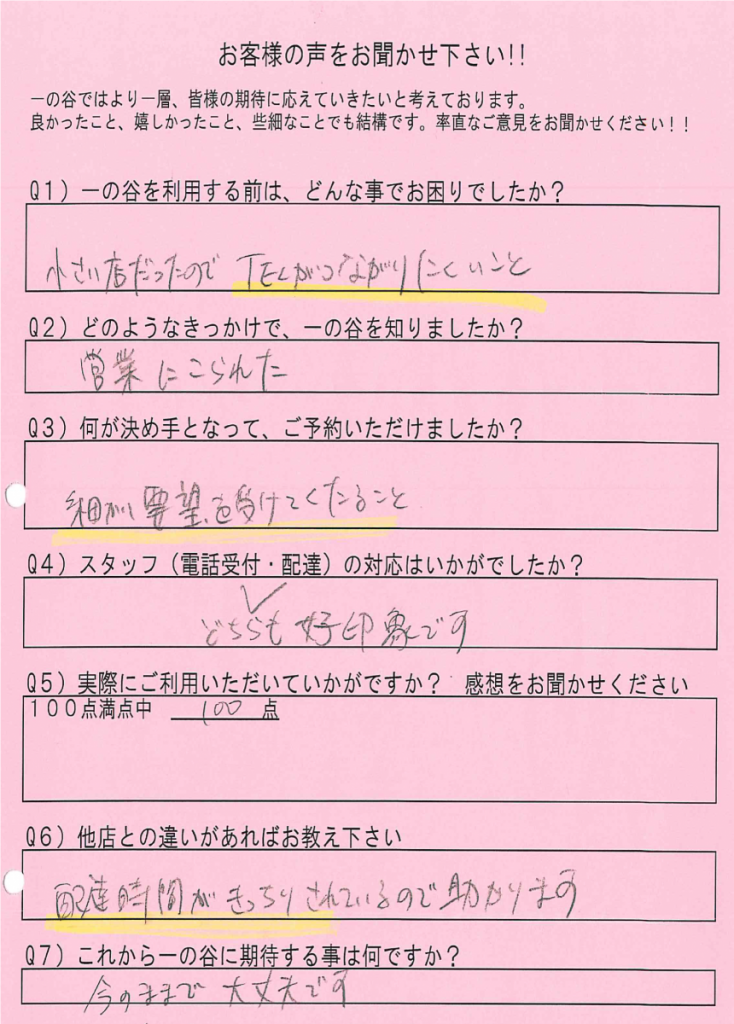 お客様の声をお聞かせ下さい!!
一の谷ではより一層、皆様の期待に応えていきたいと考えております。
良かったこと、嬉しかったこと、些細なことでも結構です。率直なご意見をお聞かせください！！
Q1）一の谷を利用する前は、どんな事でお困りでしたか？
小さい店だったので TELがつながりにくいこと
Q2）どのようなきっかけで、一の谷を知りましたか？
営業にこられた
Q3）何が決め手となって、ご予約いただけましたか？
細かい要望を受けてくださること
Q4）スタッフ（電話受付・配達）の対応はいかがでしたか？
どちらも好印象です
Q5）実際にご利用いただいていかがですか？　感想をお聞かせください
100点満点中　100　点
Q6）他店との違いがあればお教え下さい
配達時間がきっちりされているので助かります
Q7）これから一の谷に期待する事は何ですか？
今のままで大丈夫です